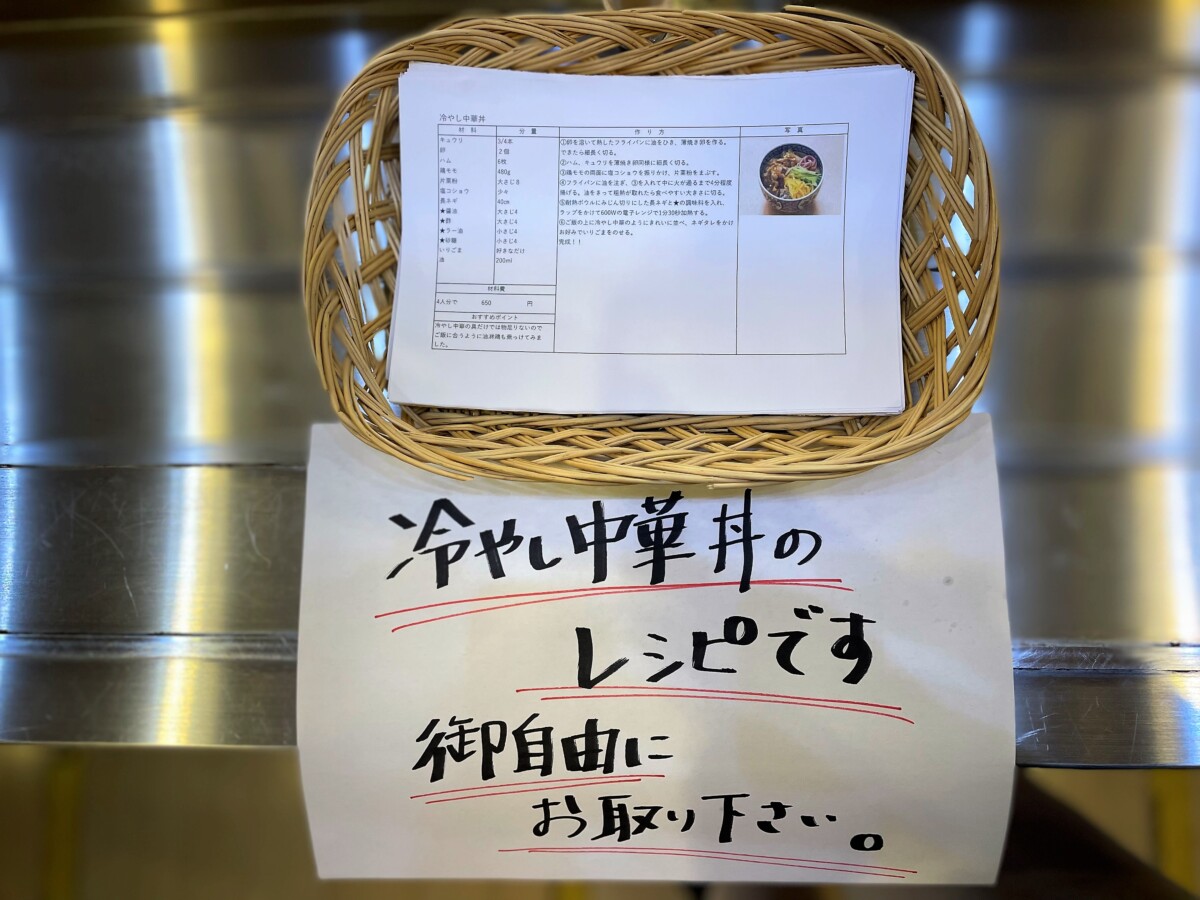 冷やし中華丼
材 料 分 量 作 り 方 写 真
キュウリ 3/4本
卵 2個
ハム 6枚
鶏モモ 480g
片栗粉 大さじ8
塩コショウ 少々
長ネギ 40cm
★醤油 大さじ4
★酢 大さじ4
★ラー油 小さじ4
★砂糖 小さじ4
いりごま 好きなだけ
油 200ml
材料費
4人分で 650 円
おすすめポイント
冷やし中華の具だけでは物足りないので
ご飯に合うように油淋鶏も乗っけてみま
した。
①卵を溶いて熱したフライパンに油をひき、薄焼き卵を作る。
できたら細長く切る。
②ハム、キュウリを薄焼き卵同様に細長く切る。
③鶏モモの両面に塩コショウを振りかけ、片栗粉をまぶす。
④フライパンに油を注ぎ、③を入れて中に火が通るまで4分程度
揚げる。油をきって粗熱が取れたら食べやすい大きさに切る。
⑤耐熱ボウルにみじん切りにした長ネギと★の調味料を入れ、
ラップをかけて600Wの電子レンジで1分30秒加熱する。
⑥ご飯の上に冷やし中華のようにきれいに並べ、ネギダレをかけ
お好みでいりごまをのせる。
完成！！
冷やし中華丼の
レシピです
御自由に
お取り下さい。